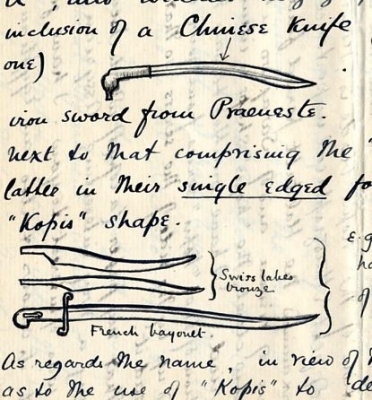 inclusion of a Chinese Knife
one)
iron sword from Praeneste.
next to that comprising the
latter in their single edged fo
"Kopis" shape.
Swiss lakes
bronze
French bayonet.
e.g
ha
of
As regards the name, in view of
as to the use of "Kopis" to de